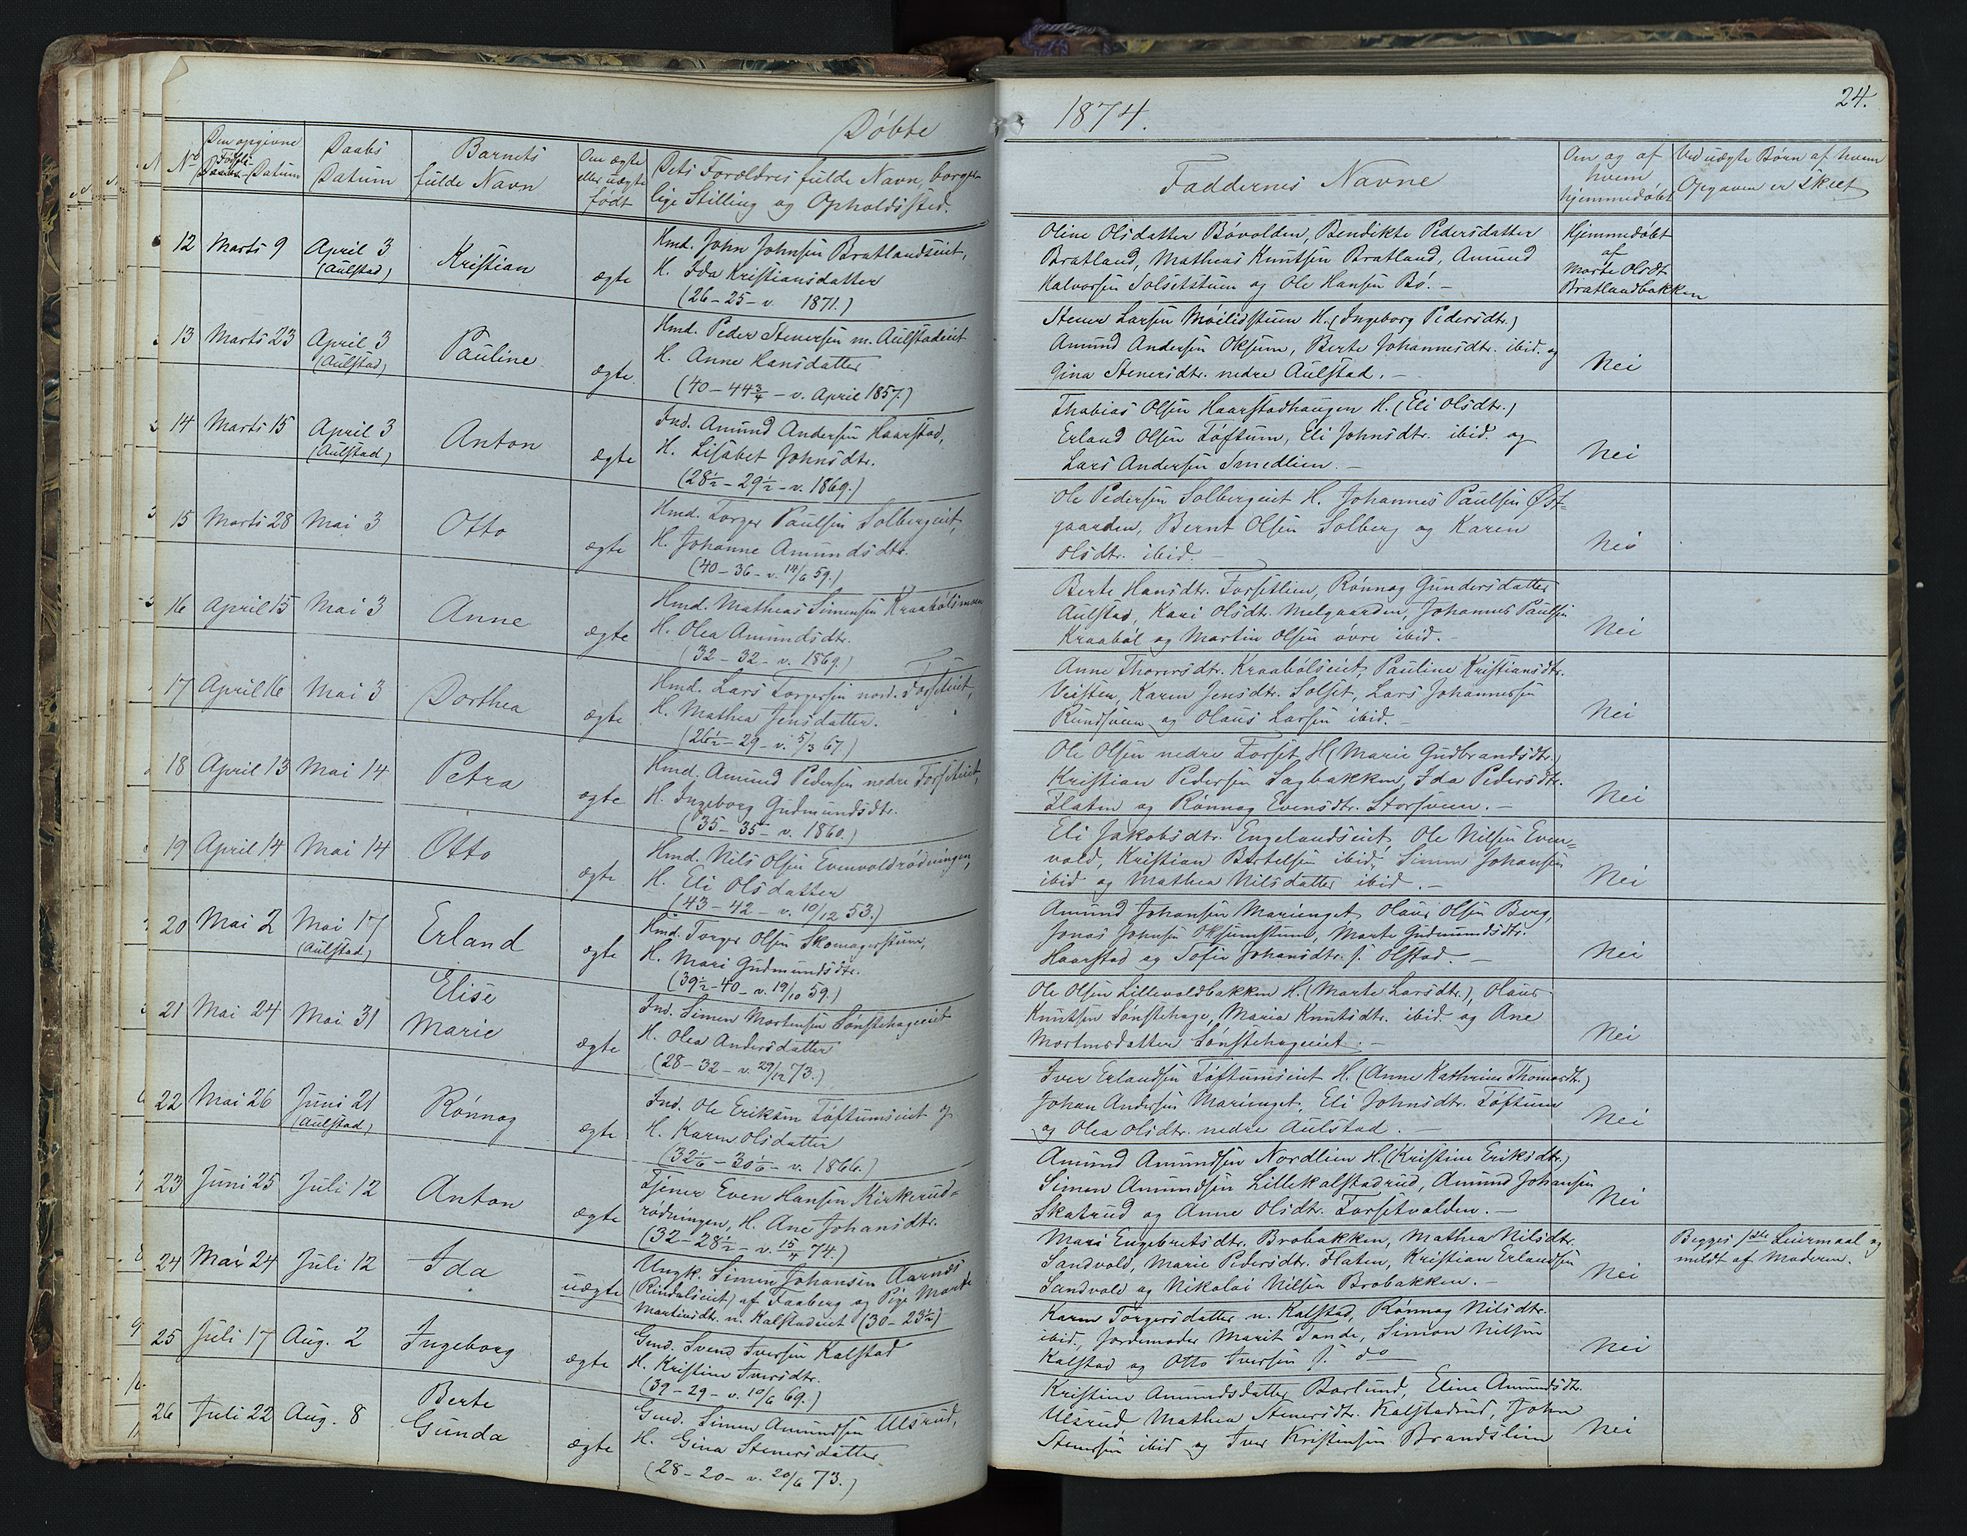 Døbte
No
Den opgivne
Føds.
Daabs-Datum
Daabs
Datum
Barnets
fulde Navn
Om ægte
eller uægte
født
Dets Foroldres fulde Navn, borger-
lige Stilling og Opholdssted.
12 Marts 9 April 3 (Aulstad) Kristian ægte
Hmd. John Johnsen Bratlandseiet,
H. Ida Kristiansdatter
(26-25-v. 1871.)
13 Marts 23 April 3 (Aulstad) Pauline ægte
Hmd. Peder Stenersen m. Aulstadeiet
H. Anne Hansdatter
(40-44 3/4-v. April 1857.)
14 Marts 15 April 3 (Aulstad) Anton ægte
Ind. Amund Andersen Haarstad,
H. Lisabet Johnsdtr.
(28½-29½-v. 1869.)
15 Marts 28 Mai 3 Otto ægte
Hmd. Torger Paulsen Solbergeiet,
H. Johanne Amundsdtr.
(40-36-v. 14/6 59.)
16 April 15 Mai 3 Anne ægte
Hmd. Mathias Simensen Kraabølsmoen
H. Olea Amundsdtr.
(32-32-v. 1869.)
17 April 16 Mai 3 Dorthea ægte
Hmd. Lars Torgersen nord. Forseteiet,
H. Mathea Jensdatter.
(26½-29-v. 5/3 67.)
18 April 13 Mai 14 Petra ægte
Hmd. Amund Pedersen nedre Forseteiet,
H. Ingeborg Gudmundsdtr.
(35-35-v. 1860.)
19 April 14 Mai 14 Otto ægte
Hmd. Nils Olsen Evenvoldrødningen,
H. Eli Olsdatter
(43-42-v. 10/12 53.)
20 Mai 2 Mai 17 (Aulstad) Erland ægte
Hmd. Torger Olsen Skomagerstuen,
H. Mari Gudmundsdtr.
(39½-40-v. 19/10 59.)
21 Mai 24 Mai 31 Elise Marie ægte
Ind. Simen Mortensen Sønstehageeiet
H. Olea Andersdatter
(28-32-v. 29/12 73.)
22 Mai 26 Juni 21 (Aulstad) Rønnog ægte
Ind. Ole Eriksen Toftumseiet og
H. Karen Olsdatter
(32 1/6-30 1/6-v. 1866.)
23 Juni 25 Juli 12 Anton ægte
Tjener Even Hansen Kirkerud-
rødningen, H. Ane Johansdtr.
(32-28½-v. 15/4 74.)
24 Mai 24 Juli 12 Ida uægte
Ungk. Simen Johansen Aarnæs
(Rindalseiet) af Faaberg og Pige Marthe
Martinsdtr. n. Kalstadeiet (30-23½)
25 Juli 17 Aug. 2 Ingeborg ægte
Gmd. Svend Iversen Kalstad
H. Kristine Iversdtr.
(39-29-v. 10/6 69.)
26 Juli 22 Aug. 8 Berte Gunda ægte
Gmd. Simen Amundsen Ulsrud,
H. Gina Stenersdatter
(28-20-v. 20/6 73.)
1874.
24.
Faddernes Navne
Om og af
hvem
hjemmedøbt
Ved uægte Børn af hvem
Opgaven er skeet
Oline Olsdatter Bøvolden, Bendikte Pedersdatter
Bratland, Mathias Knutsen Bratland, Amund
Halvorsen Solsetstuen og Ole Hansen Bø. -
Hjemmedøbt
af
Marte Olsdt.
Bratlandbakken
Stener Larsen Moilidstuen H. (Ingeborg Pedersdtr.)
Amund Andersen Oksum, Berte Johannesdtr. ibid. og
Gina Stenersdtr. nedre Aulstad. -
Nei
Thobias Olsen Haarstadhaugen H. (Eli Olsdtr.)
Erland Olsen Toftum, Eli Johnsdtr. ibid. og
Lars Andersen Smedlien. -
Nei
Ole Pedersen Solbergeiet H. Johannes Paulsen Øst-
gaarden, Bernt Olsen Solberg og Karen
Olsdtr. ibid. -
Nei
Berte Hansdtr. Forsetlien, Rønnog Gundersdatter
Aulstad, Kari Olsdtr. Melgaarden, Johannes Paulsen
Kraabøl og Martin Olsen øvre ibid. -
Nei
Anne Thorersdtr. Kraabølseiet, Pauline Kristiansdtr.
Veisten, Karen Jensdtr. Solset, Lars Johannesen
Rundsveen og Olaus Larsen ibid. -
Nei
Ole Olsen nedre Forset H (Marie Gudbrandsdtr.
Kristian Pedersen Sagbakken, Ida Pedersdtr.
Flaten og Rønnog Evensdtr. Storsveen. -
Nei
Eli Jakobsdtr. Engelandseiet, Ole Nilsen Even-
vold, Kristian Bertelsen ibid, Simen Johansen
ibid og Mathea Nilsdatter ibid. -
Nei
Amund Johansen Marienget, Olaus Olsen Berg,
Jonas Johnsen Oksumstuen, Marte Gudmundsdtr.
Haarstad og Sofie Johansdtr. s. Olstad. -
Nei
Ole Olsen Lillevoldbakken H. (Marte Larsdtr.), Olaus
Knutsen Sønstehage, Maria Knutsdtr. ibid. og Ane
Mortensdatter Sønstehageeiet. -
Nei
Iver Erlandsen Toftumseiet H. (Anne Kathrine Thomasdtr.)
Johan Andersen Marienget, Eli Johnsdtr. Toftum
og Olea Olsdtr. nedre Aulstad. -
Nei
Amund Amundsen Nordlien H. (Kristine Eriksdtr.)
Simen Amundsen Lillekalstadrud, Amund Johansen
Skatrud og Anne Olsdtr. Forsetvolden. -
Nei
Mari Engebretsdtr. Brobakken, Mathea Nilsdtr.
Sandvold, Marie Pedersdtr. Flaten, Kristian Erlandsen
Sandvold og Nikolai Nilsen Brobakken. -
Nei
Begges 1ste Leiermaal og
meldt af Moderen.
Karen Torgersdatter n. Kalstad, Rønnog Nilsdtr.
ibid, Jordemoder Marit Tande, Simon Nilsen
Kalstad og Otto Iversen s. do -
Nei
Kristine Amundsdatter Borlund, Eline Amundsdtr.
Ulsrud, Mathea Stenersdtr. Kalstadrud, John
Stenersen ibid og Iver Kristensen Brandslien
Nei